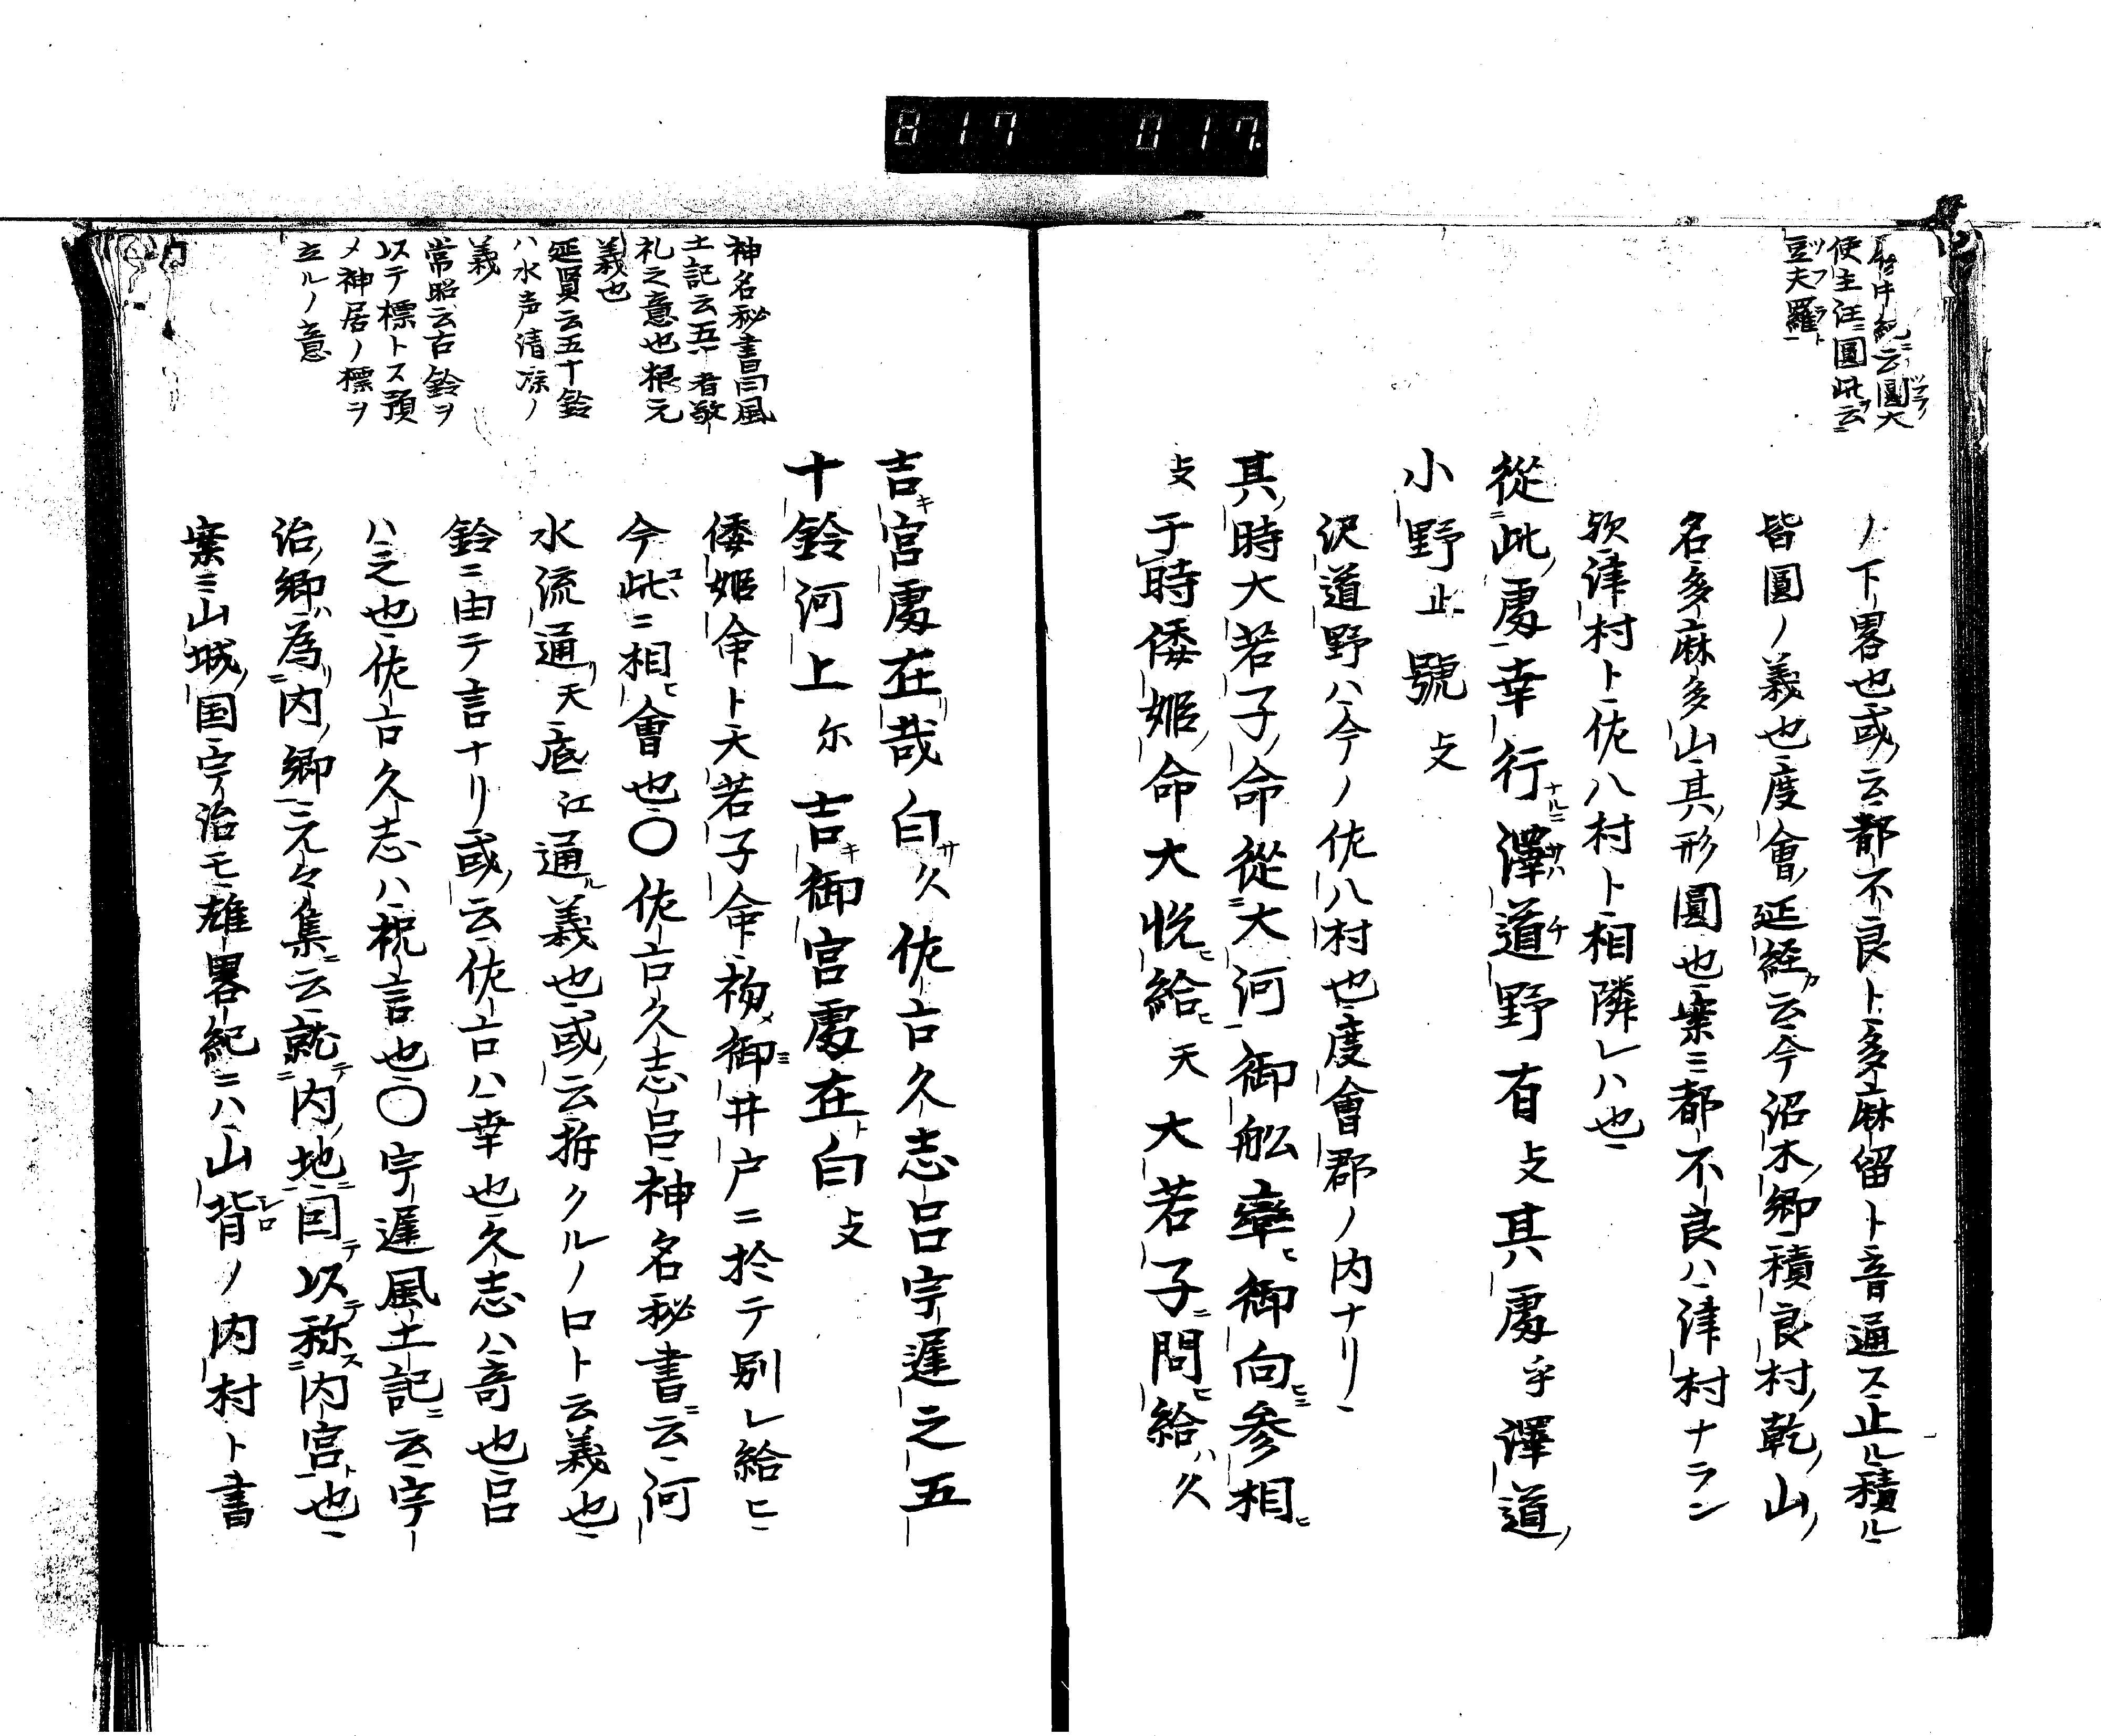 817 017.
履中紀ニ云圓大
使主注ニ圓此ヲ云ニ
豆夫羅ト
ノ下畧也或ノ云都不良ト多麻留ト音通ス止ル積ル
皆圓ノ義也度會ノ延経カ云今沼木ノ郷積良村ノ乾ノ山ノ
名多麻多山其ノ形圓也案ミ都不良ハ津村ナラン
欤津村ト佐八村ト相隣レハ也
從此ノ處幸行ナルニ澤道野有支其處乎澤道ノ
小野止號支
沢道野ハ今ノ佐八村也度會郡ノ内ナリ
其ノ時大若子ノ命從大河御舩率ヒ御向ヒミ参相ヒ
支于時倭姬ノ命大悦ヒ給ヒ天大若子ニ問ヒ給ハ久
神名秘書曰風
土記云五十者敬
礼之意也根元
義也
延賢云五十鈴
ハ水声清涼ノ
義
常昭云古鈴ヲ
以テ標トス預
メ神居ノ標ヲ
立ルノ意
吉キ宮處在リ哉白サク久佐古久志呂宇遲之五
十鈴河上尓吉キ御宮處在ト白支
倭姬命ト大若子命初メ御ミ井戸ニ於テ別レ給ヒ
今此コヽニ相ヒ會也〇佐古久志呂神名秘書ニ云河
水流通リ天底江通ル義也或ノ云拆クルノ口ト云義也
鈴ニ由テ言ナリ或ノ云佐古ハ幸也久志ハ奇也呂
ハ之也佐古久志ハ祝言也〇宇遲風土記ニ云宇
治ノ郷ハ為リ内ノ郷元々集ニ云就テ内ノ地ニ因テ以テ称ス内宮ト也
案ミ山城ノ国宇治モ雄畧紀ニハ山背シロノ内村ト書